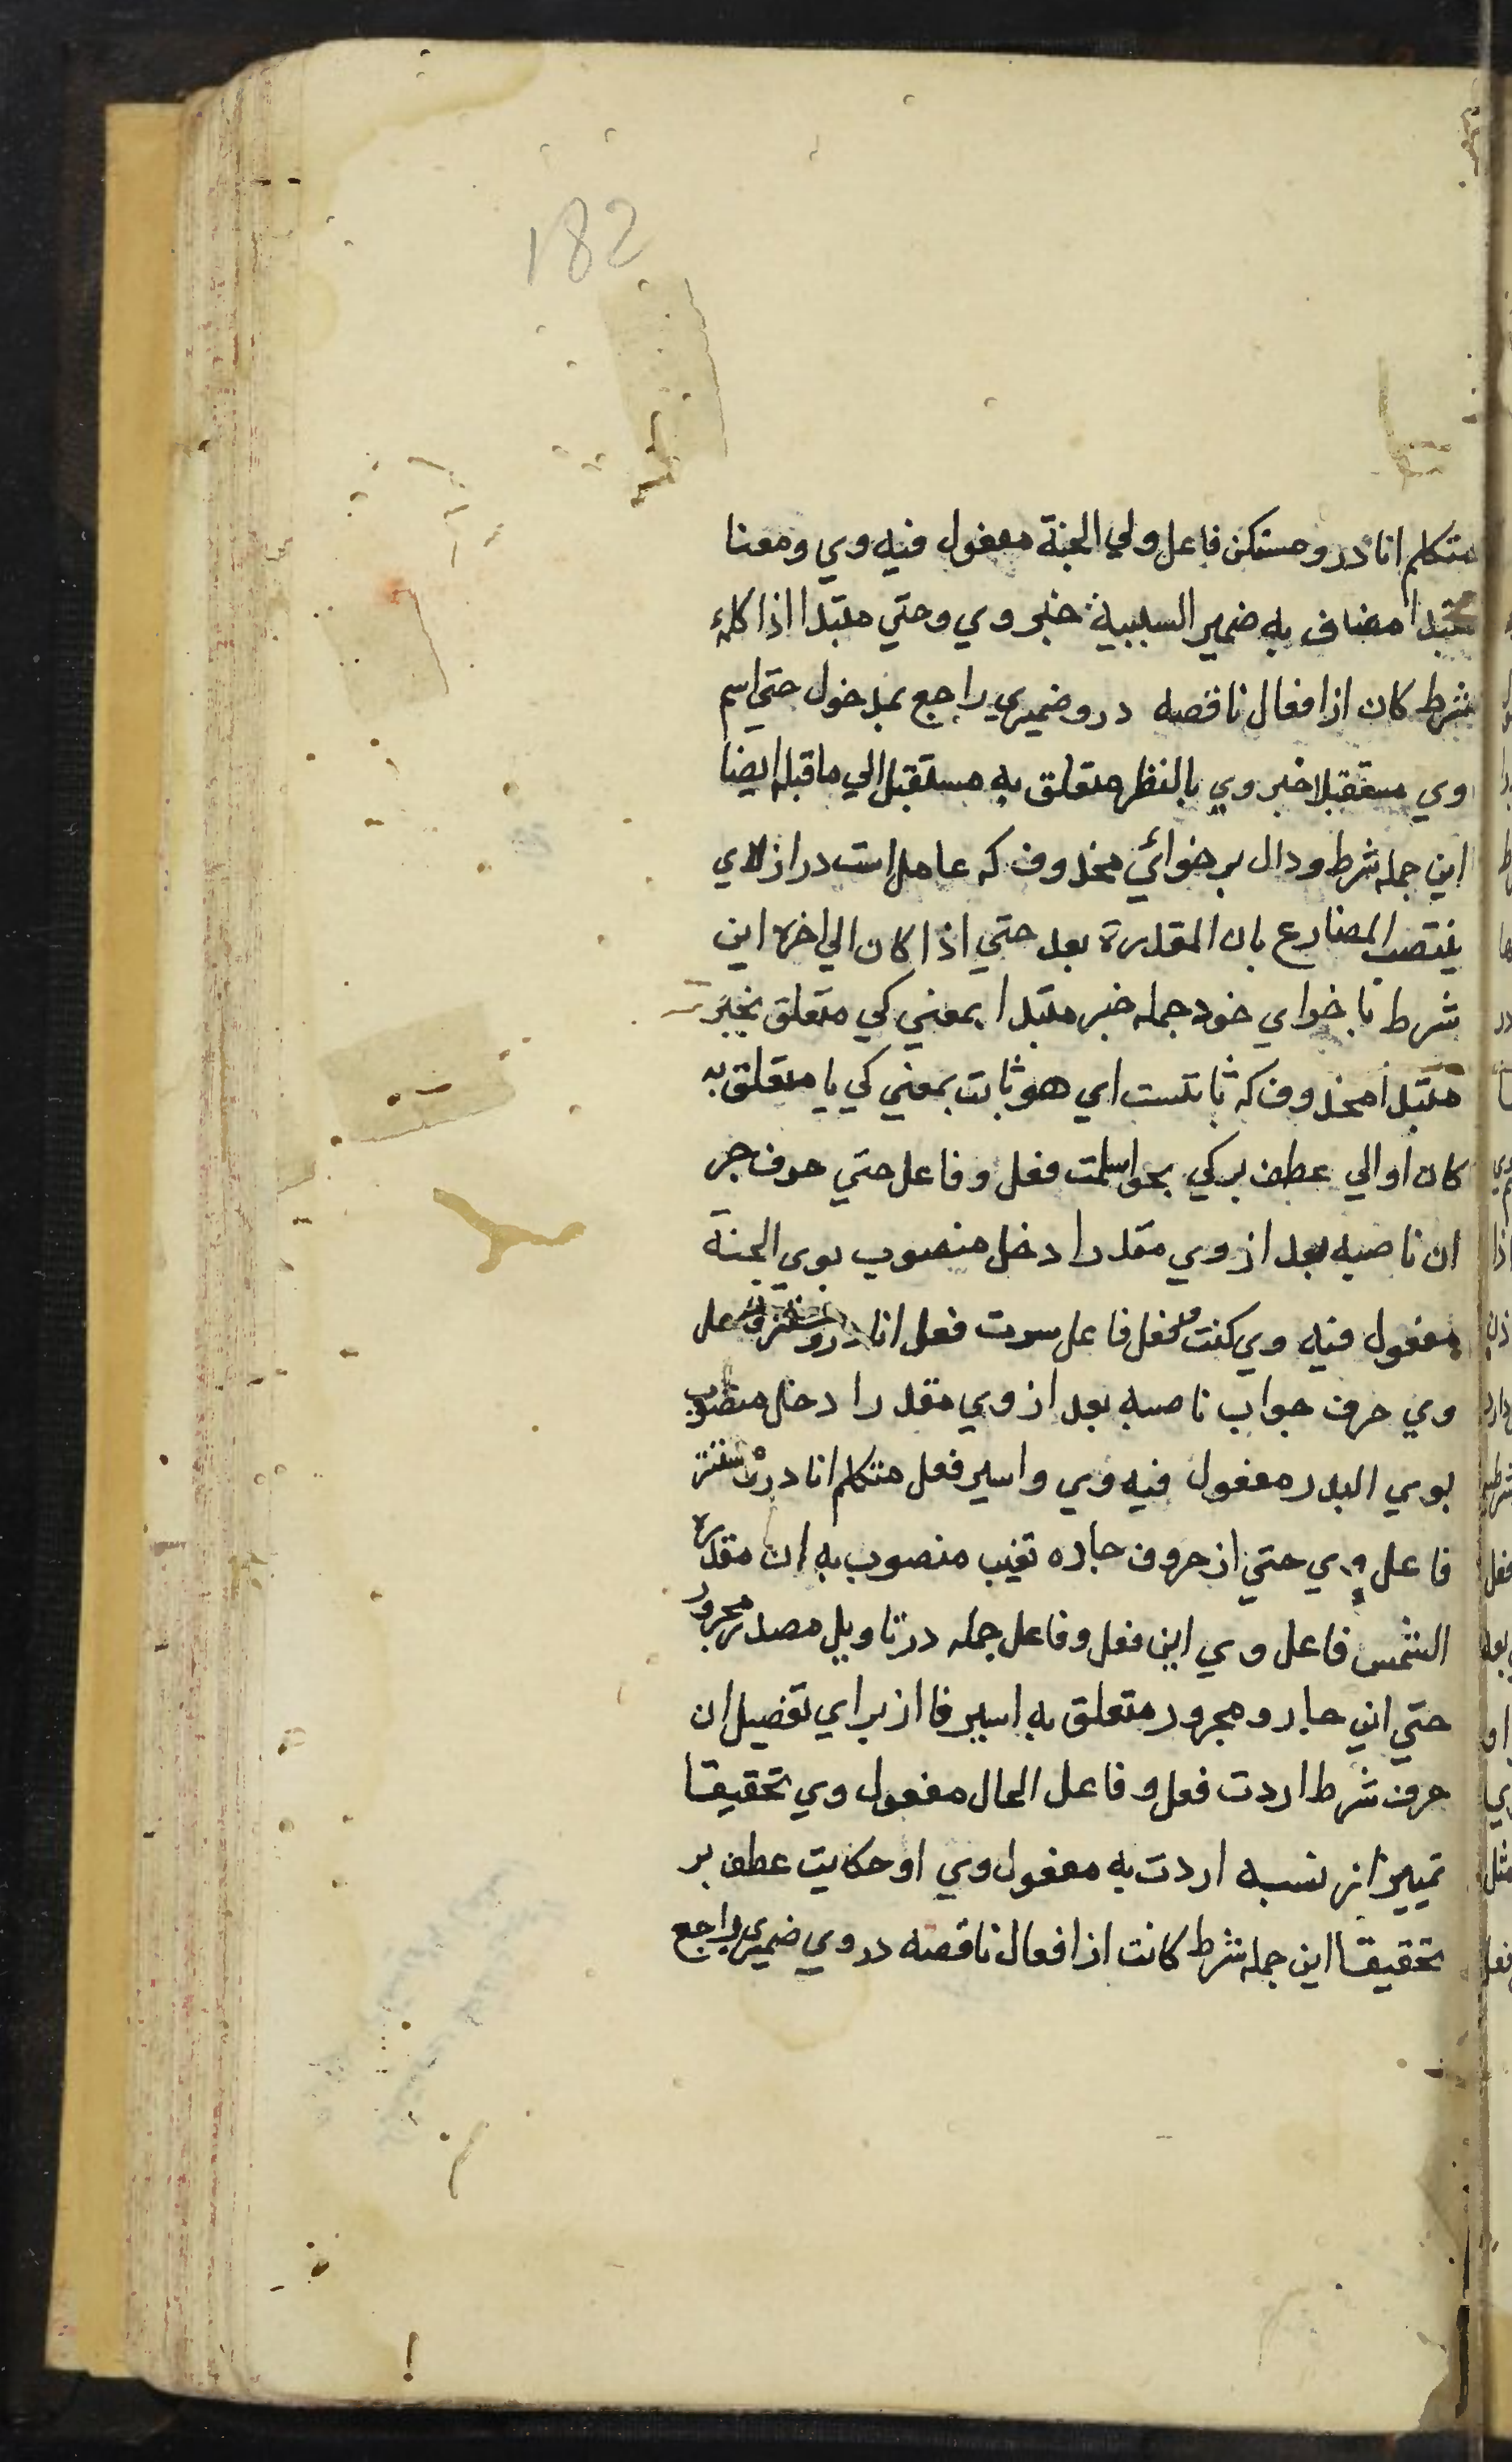 182
متكلم انا درو مستكن فاعل ولي الجنة مفعول فيه وي ومعنا
مبتدا مضاف به ضمير السببية خبر وي وحتي مبتدا اذا كلمه
شرط كان از افعال ناقصه درو ضميري راجع بمدخول حتي اسم
وي مستقبلا خبر وي بالنظر متعلق به مستقبل الي ما قبله ايضا
اين جمله شرط ودال بر خوائي محذوف كه عامل است در از لاي
ينتصب المضارع بان المقدرة بعد حتي اذا كان الي اخره اين
شرط با خواي خود جمله خبر مبتدا بمعني كي متعلق بخبر
مبتدا محذوف كه ثابتست اي هو ثابت بمعني كي يا متعلق به
كان او الي عطف بر كي نحو اسلمت فعل وفاعل حتي حرف جر
ان ناصبه بعد از وي مقدر ادخل منصوب بوي الجنة
مفعول فيه وي كنت فعل فاعل سرت فعل انا درو فاعل
وي حرف جواب ناصبه بعد از وي مقدر ادخل منصوب
بوي البلد مفعول فيه وي واسير فعل متكلم انا درو مستتر
فاعل وي حتي از حروف جاره تغيب منصوب به ان مقدره
الشمس فاعل وي اين فعل وفاعل جمله در تاويل مصدر مجرور
حتي اين جار و مجرور متعلق به اسير فا از براي تفصيل ان
حرف شرط اردت فعل و فاعل الحال مفعول وي تحقيقا
تمييز از نسبه اردت به مفعول وي او حكايت عطف بر
تحقيقا اين جمله شرط كانت از افعال ناقصه در وي ضميري راجع